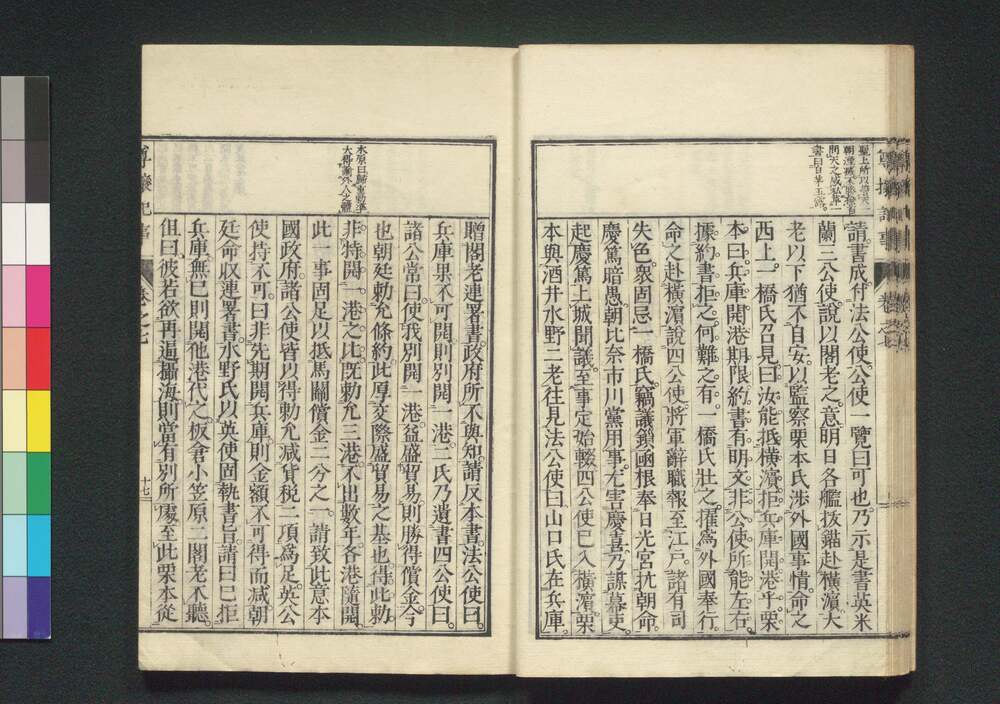 請書成付法公使公使一覽曰可也乃示是書英米
蘭三公使說以閣老之意明日各艦拔錨赴橫濱大
老以下猶不自安以監察栗本氏涉外國事情命之
西上一橋氏召見曰汝能抵橫濱拒兵庫開港乎栗
本曰兵庫開港期限約書有明文非公使所能左右
據約書拒之何難之有一橋氏壯之擢爲外國奉行
命之赴橫濱說四公使將軍辭職報至江戶諸有司
失色衆固忌一橋氏竊議鎖函根奉日光宮抗朝命
慶篤暗愚朝比奈市川黨用事尤害慶喜乃謀幕吏
起慶篤上城聞議至事定始輟四公使已入橫濱栗
本與酒井水野二老往見法公使曰山口氏在兵庫
贈閣老連署書政府所不與知請反本書法公使曰
兵庫果不可開則別開一港二氏乃遺書四公使曰
諸公常曰使我別開一港益盛貿易則勝得償金今
也朝廷勅允條約此厚交際盛貿易之基也得此勅
非特開一港之比既勅允三港不出數年各港隨開
此一事固足以抵馬關償金三分之二請致此意本
國政府諸公使皆以得勅允減貨稅二項爲足英公
使持不可曰非先期開兵庫則金額不可得而減朝
廷命收連署書水野氏以英使固執書旨請曰已拒
兵庫無已則開他港代之板倉小笠原二閣老不聽
但曰彼若欲再逼攝海則當有別所處至此栗本從
尊攘紀事
卷之七
十七